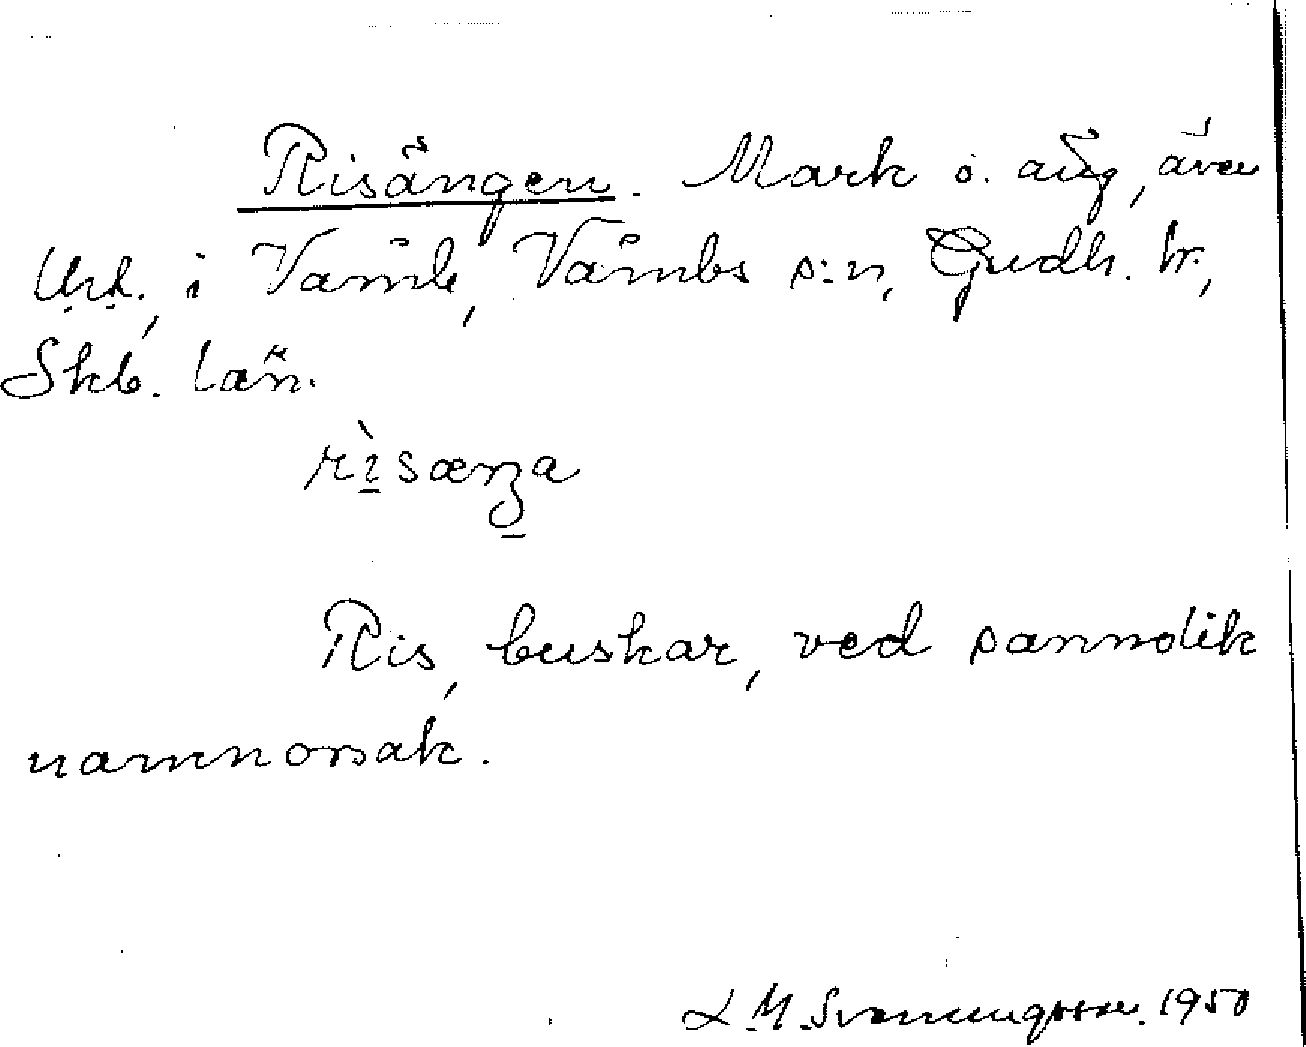 Risängen. Mark o. äng, även
Urk., i Våmb, Våmbs s:n, Gudh. hr,
Skb. län.
rìsænga
Ris, buskar, ved sannolik
namnorsak.
L. M. Svenungsson. 1950